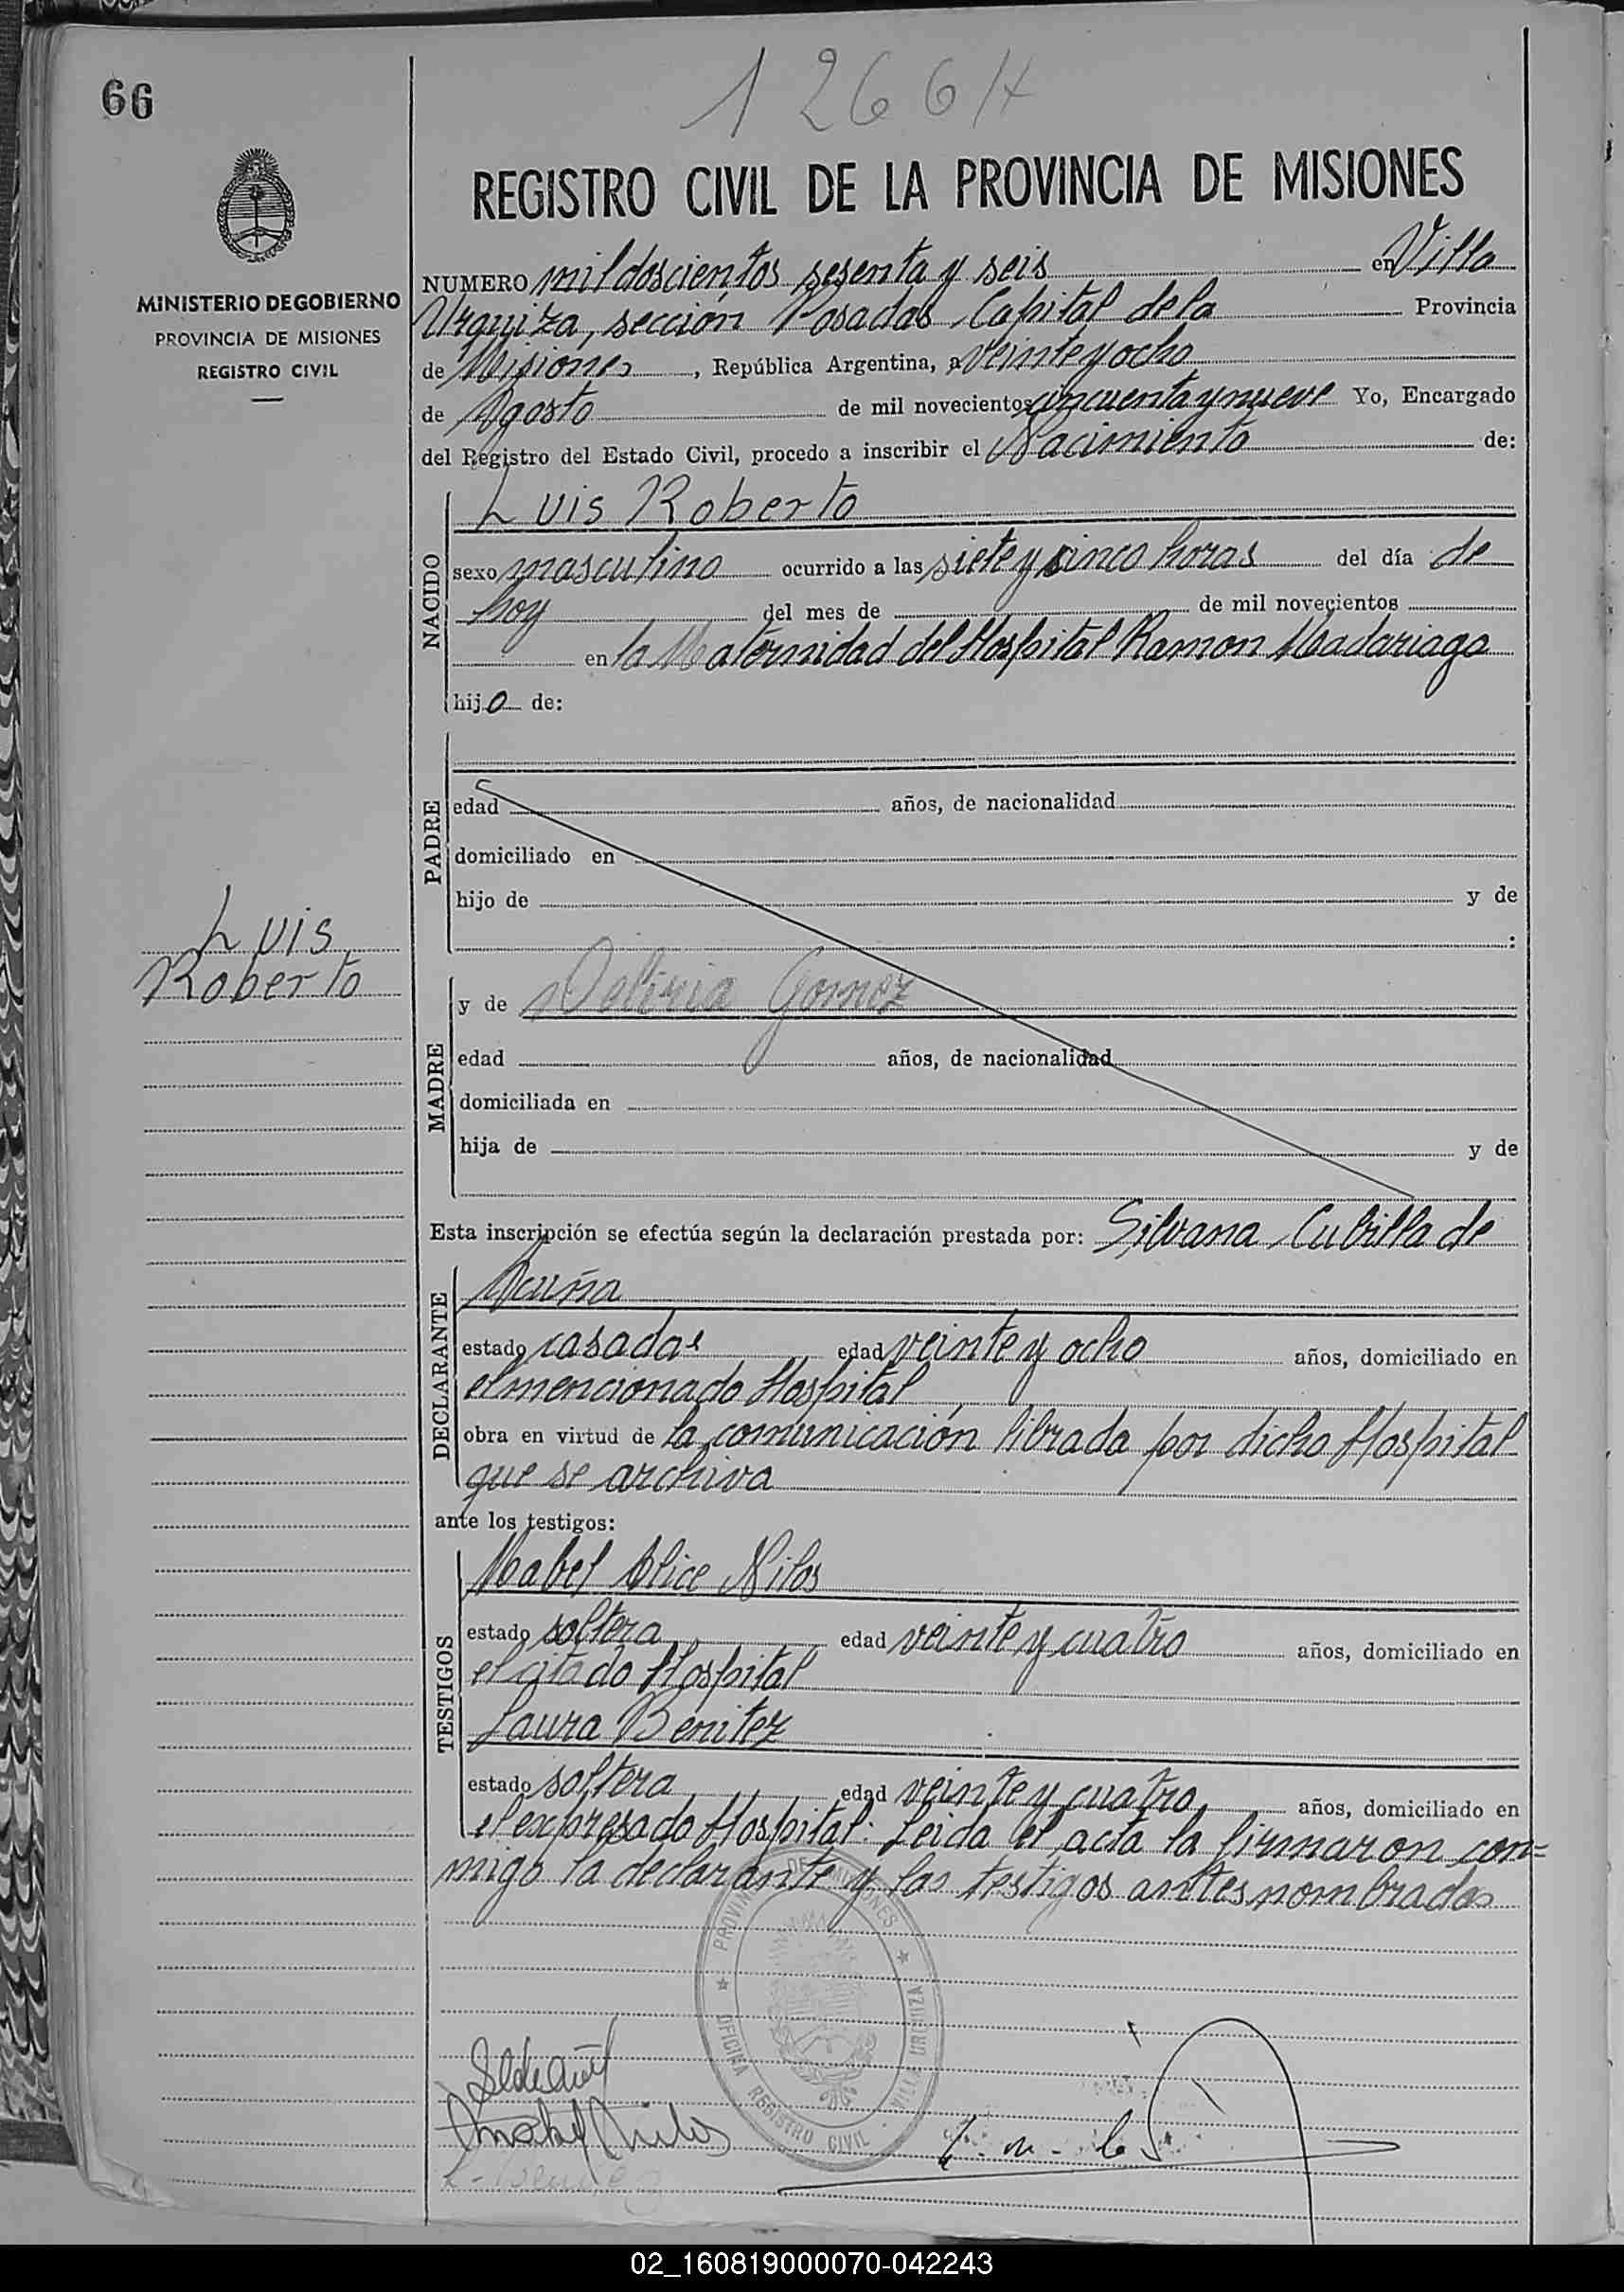 66
1266/4
MINISTERIO DE GOBIERNO
PROVINCIA DE MISIONES
REGISTRO CIVIL
REGISTRO CIVIL DE LA PROVINCIA DE MISIONES
NUMERO mil doscientos sesenta y seis en Villa
Urquiza, sección Posadas Capital de la Provincia
de Misiones, República Argentina, a veinte y ocho
de Agosto de mil novecientos cincuenta y nueve Yo, Encargado
del Registro del Estado Civil, procedo a inscribir el Nacimiento de:
NACIDO
Luis Roberto
sexo masculino ocurrido a las siete y cinco horas del día de
hoy del mes de de mil novecientos
en la Maternidad del Hospital Ramon Madariaga
hijo de:
PADRE
edad años, de nacionalidad
domiciliado en
hijo de y de
:
Luis
Roberto
MADRE
y de Deliria Gomez
edad años, de nacionalidad
domiciliada en
hija de y de
Esta inscripción se efectúa según la declaración prestada por: Silvana Cubilla de
DECLARANTE
Acuña
estado casada edad veinte y ocho años, domiciliado en
el mencionado Hospital
obra en virtud de la comunicación librada por dicho Hospital
que se archiva
ante los testigos:
TESTIGOS
Mabel Alice Nilos
estado soltera edad veinte y cuatro años, domiciliado en
el citado Hospital
Laura Benitez
estado soltera edad veinte y cuatro años, domiciliado en
el expresado Hospital: Leida el acta la firmaron con=
migo la declarante y las testigos antes nombradas
PROVINCIA DE MISIONES ★ VILLA URQUIZA
★ OFICINA REGISTRO CIVIL
02_160819000070-042243